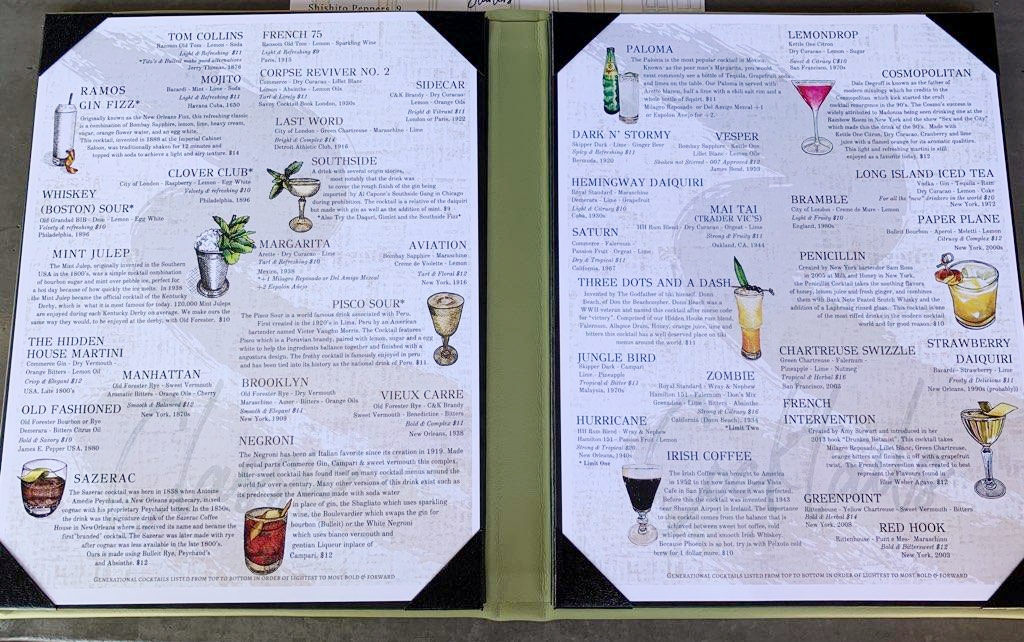 Shishito Peppers 9
TOM COLLINS
Ransom Old Tom - Lemon - Soda
Light & Refreshing $11
*Tito's & Bulleit make good alternatives
Jerry Thomas, 1876
FRENCH 75
Ransom Old Tom - Lemon - Sparkling Wine
Light & Refreshing $9
Paris, 1915
MOJITO
Bacardi - Mint - Lime - Soda
Light & Refreshing $11
Havana Cuba, 1650
CORPSE REVIVER NO. 2
Commerce - Dry Curacao - Lillet Blanc
Lemon - Absinthe - Lemon Oils
Tart & Lovely $11
Savoy Cocktail Book London, 1930s
SIDECAR
C&K Brandy - Dry Curacao
Lemon - Orange Oils
Bright & Floral $11
London or Paris, 1922
RAMOS
GIN FIZZ*
Originally known as the New Orleans Fizz, this refreshing classic
is a combination of Bombay Sapphire, lemon, lime, heavy cream,
sugar, orange flower water, and an egg white.
This cocktail, invented in 1888 at the Imperial Cabinet
Saloon, was traditionally shaken for 12 minutes and
topped with soda to achieve a light and airy texture. $14
LAST WORD
City of London - Green Chartreuse - Maraschino - Lime
Bright & Complex $14
Detroit Athletic Club, 1916
CLOVER CLUB*
City of London - Raspberry - Lemon - Egg White
Velvety & refreshing $10
Philadelphia, 1896
SOUTHSIDE
A drink with several origin stories,
most notably that the drink was
to cover the rough finish of the gin being
imported by Al Capone's Southside Gang in Chicago
during prohibition. The cocktail is a relative of the daiquiri
but made with gin as well as the addition of mint. $9
*Also Try the Daquiri, Gimlet and the Southside Fizz*
WHISKEY
(BOSTON) SOUR*
Old Grandad BIB - Dem - Lemon - Egg White
Velvety & refreshing $10
Philadelphia, 1896
MINT JULEP
The Mint Julep, originally invented in the Southern
USA in the 1800's, was a simple cocktail combination
of bourbon sugar and mint over pebble ice, perfect for
a hot day because of how quickly the ice melts. In 1938
the Mint Julep became the official cocktail of the Kentucky
Derby, which is what it is most famous for today. 120,000 Mint Juleps
are enjoyed during each Kentucky Derby on average. We make ours the
same way they would, to be enjoyed at the derby, with Old Forester. $10
MARGARITA
Arette - Dry Curacao - Lime
Tart & Refreshing $10
Mexico, 1938
*+1 Milagro Reposado or Del Amigo Mezcal
+2 Espolon Añejo
AVIATION
Bombay Sapphire - Maraschino
Creme de Violette - Lemon
Tart & Floral $12
New York, 1916
PISCO SOUR*
The Pisco Sour is a world famous drink associated with Peru.
First created in the 1920's in Lima, Peru by an American
bartender named Victor Vaughn Morris. The Cocktail features
Pisco which is a Peruvian brandy, paired with lemon, sugar and a egg
white to help the ingredients balance together and finished with a
angostura design. The frothy cocktail is famously enjoyed in peru
and has been tied into its history as the national drink of Peru. $11
THE HIDDEN
HOUSE MARTINI
Commerce Gin - Dry Vermouth -
Orange Bitters - Lemon Oil
Crisp & Elegant $12
USA, Late 1800's
MANHATTAN
Old Forester Rye - Sweet Vermouth
Aromatic Bitters - Orange Oils - Cherry
Smooth & Balanced $12
New York, 1870s
BROOKLYN
Old Forester Rye - Dry Vermouth
Maraschino - Amer - Bitters - Orange Oils
Smooth & Elegant $11
New York, 1909
VIEUX CARRE
Old Forester Rye - C&K Brandy
Sweet Vermouth - Benedictine - Bitters
Bold & Complex $11
New Orleans, 1938
OLD FASHIONED
Old Forester Bourbon or Rye
Demerara - Bitters Citrus Oil
Bold & Savory $19
James E. Pepper USA, 1880
NEGRONI
The Negroni has been an Italian favorite since its creation in 1919. Made
of equal parts Commerce Gin, Campari & sweet vermouth this complex,
bitter-sweet cocktail has found itself on many cocktail menus around the
world for over a century. Many other versions of this drink exist such as
its predecessor the Americano made with soda water
in place of gin, the Sbagliato which uses sparkling
wine, the Boulevardier which swaps the gin for
bourbon (Bulleit) or the White Negroni
which uses bianco vermouth and
gentian Liqueur inplace of
Campari, $12
SAZERAC
The Sazerac cocktail was born in 1838 when Antoine
Amedie Peychaud, a New Orleans apothecary, mixed
cognac with his proprietary Peychaud bitters. In the 1850s,
the drink was the signature drink of the Sazerac Coffee
House in NewOrleans where it received its name and became the
first "branded" cocktail. The Sazerac was later made with rye
after cognac was less available in the late 1800's.
Ours is made using Bulleit Rye, Peychaud's
and Absinthe. $12
GENERATIONAL COCKTAILS LISTED FROM TOP TO BOTTOM IN ORDER OF LIGHTEST TO MOST BOLD & FORWARD
PALOMA
The Paloma is the most popular cocktail in Mexico.
Known as the poor man's Margarita, you would
most commonly see a bottle of Tequila, Grapefruit soda
and limes on the table. Our Paloma is served with
Arette blanco, half a lime with a chili salt rim and a
whole bottle of Squirt. $11
Milagro Reposado or Del Amigo Mezcal +1
or Espolon Añejo for +2.
LEMONDROP
Kettle One Citron
Dry Curacao - Lemon - Sugar
Sweet & Citrusy $10
San Francisco, 1970s
COSMOPOLITAN
Dale Degroff is known as the father of
modern mixology which he credits to the
Cosmopolitan, which kick started the craft
cocktail resurgence in the 90's. The Cosmo's success is
widely attributed to Madonna being seen drinking one at the
Rainbow Room in New York and the show "Sex and the City"
which made this the drink of the 90's. Made with
Kettle One Citron, Dry Curacao, Cranberry and lime
juice with a flamed orange for its aromatic qualities.
This light and refreshing martini is still
enjoyed as a favorite today. $12
DARK N' STORMY
Skipper Dark - Lime - Ginger Beer
Spicy & Refreshing $11
Bermuda, 1920
VESPER
Bombay Sapphire - Kettle One
Lillet Blanc - Lemon Oils
Shaken not Stirred - 007 Approved $12
James Bond, 1953
HEMINGWAY DAIQUIRI
Royal Standard - Maraschino
Demerara - Lime - Grapefruit
Light & Citrusy $10
Cuba, 1930s
LONG ISLAND ICED TEA
Vodka - Gin - Tequila - Rum
Dry Curacao - Lemon - Coke
For all the "new" drinkers in the world $10
New York, 1972
BRAMBLE
City of London - Creme de Mure - Lemon
Light & Fruity $10
England, 1980s
MAI TAI
(TRADER VIC'S)
HH Rum Blend - Dry Curacao - Orgeat - Lime
Strong & Fruity $11
Oakland, CA, 1944
PAPER PLANE
Bulleit Bourbon - Aperol - Meletti - Lemon
Citrusy & Complex $12
New York, 2000s
SATURN
Commerce - Falernum -
Passion Fruit - Orgeat - Lime
Dry & Tropical $11
California, 1967
PENICILLIN
Created by New York bartender Sam Ross
in 2005 at Milk and Honey in New York,
the Penicillin Cocktail takes the soothing flavors
of honey, lemon juice and fresh ginger, and combines
them with Bank Note Peated Scotch Whisky and the
addition of a Laphroaig rinsed glass. This cocktail is one
of the most riffed drinks in the modern cocktail,
world and for good reason. $10
THREE DOTS AND A DASH
Invented by The Godfather of tiki himself, Donn
Beach, of Don the Beachcomber, Donn Beach was a
WWII veteran and named this cocktail after morse code
for "victory". Comprised of our Hidden House rum blend,
Falernum, Allspice Dram, Honey, orange juice, lime and
bitters this cocktail has a well deserved place on tiki
menus around the world. $11
JUNGLE BIRD
Skipper Dark - Campari
Lime - Pineapple
Tropical & Bitter $11
Malaysia, 1970s
CHARTREUSE SWIZZLE
Green Chartreuse - Falernum -
Pineapple - Lime - Nutmeg
Tropical & Herbal $16
San Francisco, 2003
STRAWBERRY
DAIQUIRI
Bacardi - Strawberry - Lime
Frosty & Delicious $11
New Orleans, 1990s (probably))
ZOMBIE
Royal Standard - Wray & Nephew
Hamilton 151 - Falernum - Don's Mix
Grenadine - Lime - Bitters - Absinthe
Strong & Citrusy $16
California (Donn Beach), 1934
*Limit Two
HURRICANE
HH Rum Blend - Wray & Nephew
Hamilton 151 - Passion Fruit - Lemon
Strong & Tropical $20
New Orleans, 1940s
* Limit One
FRENCH
INTERVENTION
Created by Amy Stewart and introduced in her
2013 book "Drunken Botanist". This cocktail takes
Milagro Reposado, Lillet Blanc, Green Chartreuse,
orange bitters and finishes it off with a grapefruit
twist. The French Intervention was created to best
represent the Flavours found in
Blue Weber Agave. $12
IRISH COFFEE
The Irish Coffee was brought to America
in 1952 to the now famous Buena Vista
Cafe in San Francisco where it was perfected.
Before this the cocktail was invented in 1943
near Shannon Airport in Ireland. The importance
to the cocktail comes from the balance that is
achieved between sweet hot coffee, cold
whipped cream and smooth Irish Whiskey.
Because Phoenix is so hot, try is with Peixoto cold
brew for 1 dollar more. $10
GREENPOINT
Rittenhouse - Yellow Chartreuse - Sweet Vermouth - Bitters
Bold & Herbal $14
New York, 2008
RED HOOK
Rittenhouse - Punt e Mes - Maraschino
Bold & Bittersweet $12
New York, 2003
GENERATIONAL COCKTAILS LISTED FROM TOP TO BOTTOM IN ORDER OF LIGHTEST TO MOST BOLD & FORWARD